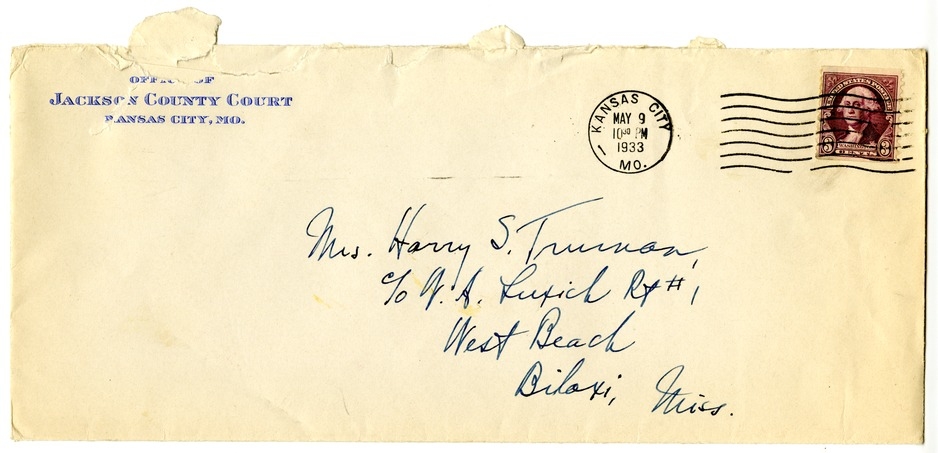 OFFICE OF
JACKSON COUNTY COURT
KANSAS CITY, MO.
KANSAS CITY
MAY 9
10 PM
1933
MO.
UNITED STATES POSTAGE
3 WASHINGTON 3
CENTS
Mrs. Harry S. Truman,
c/o W. A. Luxich Rt #1
West Beach
Biloxi, Miss.